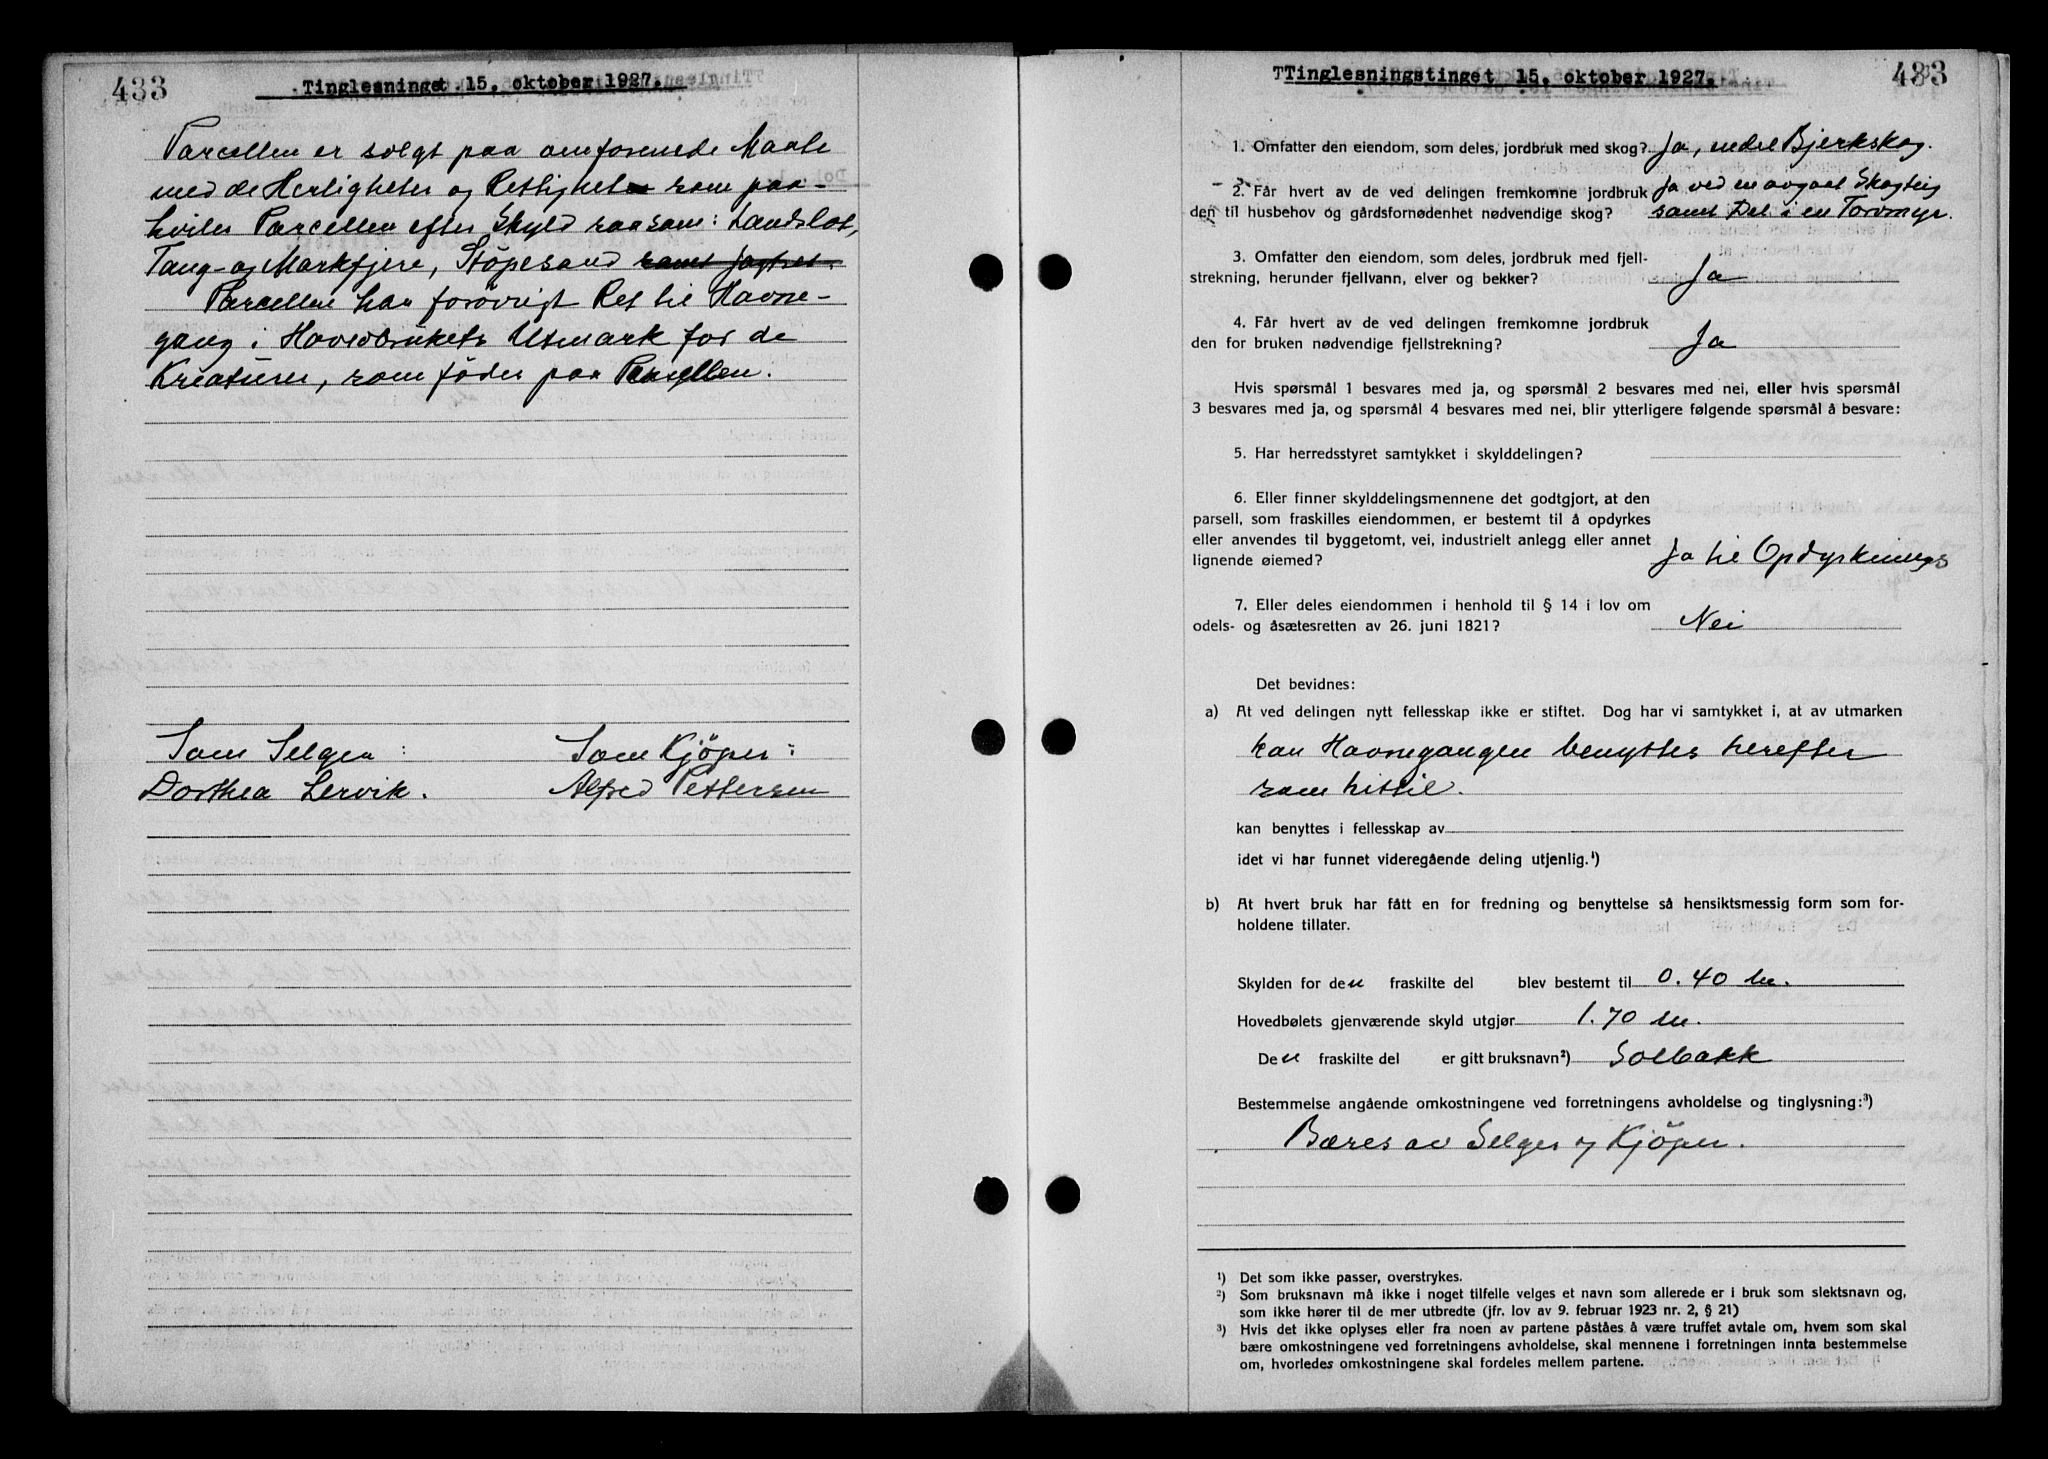 433
Tinglesninget 15. oktober 1927.
Parcellen er solgt paa omforenede Maate
med de Herligheter og Rettigheter som paa-
hviler Parcellen efter Skyld saasom: Landslot,
Tang- og Markfjere, Støpesand samt
Parcellen har forøvrigt Ret til Havne-
gang i Hovedbrukets Utmark for de
Kreaturer, som føder paa Parsellen.
Som Selger: Som Kjöper:
Dorthea Lervik. Alfred Pettersen
TTinglesningstinget 15. oktober 1927.
433
1. Omfatter den eiendom, som deles, jordbruk med skog? Ja, Bjerkskog.
2. Får hvert av de ved delingen fremkomne jordbruk Ja ved en avgaat Skogteig
den til husbehov og gårdsfornødenhet nødvendige skog? samt Del i en Torvmyr.
3. Omfatter den eiendom, som deles, jordbruk med fjell-
strekning, herunder fjellvann, elver og bekker? Ja
4. Får hvert av de ved delingen fremkomne jordbruk
den for bruken nødvendige fjellstrekning? Ja
Hvis spørsmål 1 besvares med ja, og spørsmål 2 besvares med nei, eller hvis spørsmål
3 besvares med ja, og spørsmål 4 besvares med nei, blir ytterligere følgende spørsmål å besvare:
5. Har herredsstyret samtykket i skylddelingen?
6. Eller finner skylddelingsmennene det godtgjort, at den
parsell, som fraskilles eiendommen, er bestemt til å opdyrkes
eller anvendes til byggetomt, vei, industrielt anlegg eller annet
lignende øiemed? Ja til Opdyrknings
7. Eller deles eiendommen i henhold til § 14 i lov om
odels- og åsætesretten av 26. juni 1821? Nei
Det bevidnes:
a) At ved delingen nytt fellesskap ikke er stiftet. Dog har vi samtykket i, at av utmarken
kan Havnegangen benyttes herefter
som hittil.
kan benyttes i fellesskap av
idet vi har funnet videregående deling utjenlig.¹)
b) At hvert bruk har fått en for fredning og benyttelse så hensiktsmessig form som for-
holdene tillater.
Skylden for den fraskilte del blev bestemt til 0.40 kr.
Hovedbølets gjenværende skyld utgjør 1.70 kr.
Den fraskilte del er gitt bruksnavn²) Solbakk
Bestemmelse angående omkostningene ved forretningens avholdelse og tinglysning:³)
Bæres av Selger og Kjöper.
¹) Det som ikke passer, overstrykes.
²) Som bruksnavn må ikke i noget tilfelle velges et navn som allerede er i bruk som slektsnavn og,
som ikke hører til de mer utbredte (jfr. lov av 9. februar 1923 nr. 2, § 21)
³) Hvis det ikke oplyses eller fra noen av partene påståes å være truffet avtale om, hvem som skal
bære omkostningene ved forretningens avholdelse, skal mennene i forretningen innta bestemmelse
om, hvorledes omkostningene skal fordeles mellem partene.